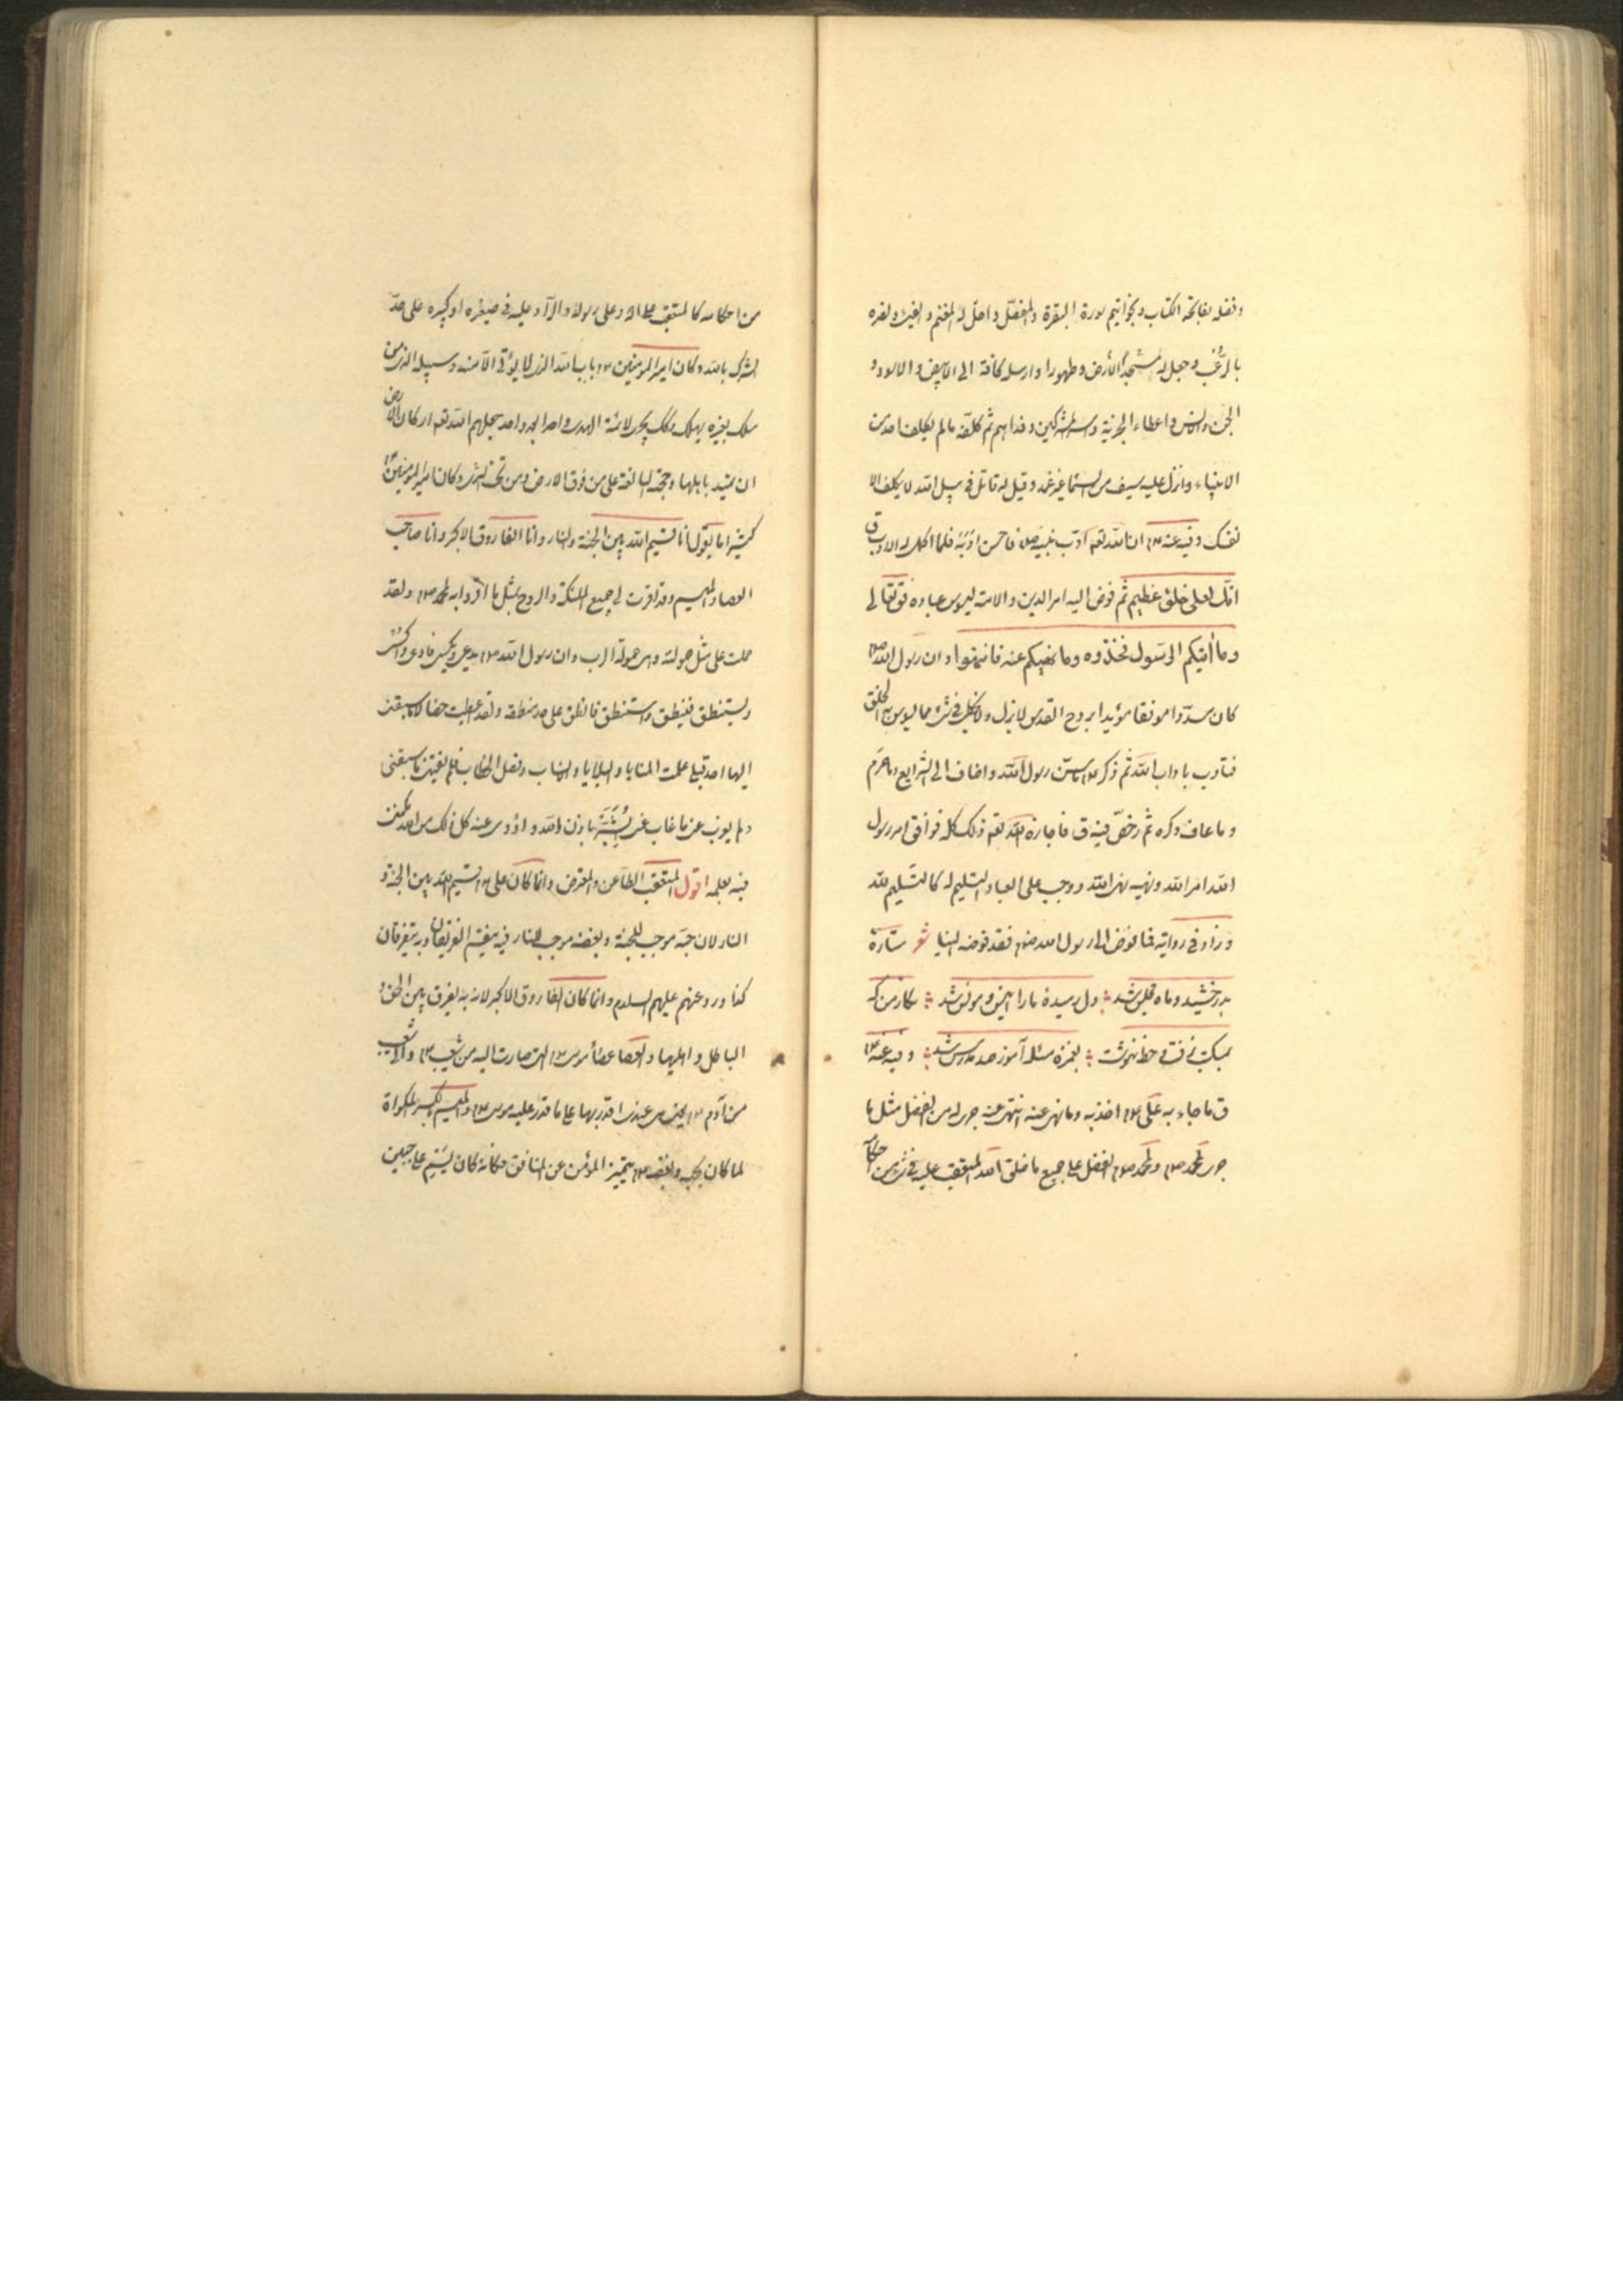 وفضله بفاتحة الكتاب وبخواتيم سورة البقرة والمفصّل واحلّ له المغنم والفئ ونصره
بالرّعب وجعل له الأرض مسجدا وطهورا وارسله كافة الى الابيض والاسود و
الجن والانس واعطاه الجزية واسر المشركين وفداهم ثم كلّفه مالم يكلف احد من
الانبياء وانزل عليه سيف من السماء في غير غمد وقيل له قاتل في سبيل الله لا تكلف الا
نفسك وفيه عنه ع ان الله تعه ادّب نبيه ص فاحسن ادبه فلما اكمل له الادب ق
انّك لعلى خلق عظيم ثم فوض اليه امر الدين والامة ليسوس عباده فق تعالى
وما آتيكم الرّسول فخذوه وما نهيكم عنه فانتهوا وان رسول الله ص
كان مسدّدا موفقا مؤيدا بروح القدس لا يزل ولا يخطئ في شئ مما يسوس به الخلق
فتأدب باداب الله ثم ذكر ع ما سنّ رسول الله واضاف الى الشرايع وما حرّم
وما عاف وكره ثم رخصّ فيه ق فاجاز الله تعه ذلك كله فوافق امر رسول
الله امر الله ونهيه نهى الله ووجب على العباد التسليم له كالتسليم لله
وزاد في رواية فما فوّض الى رسول الله ص فقد فوّضه الينا شعر ستارة
بدرخشيد وماه مجلس شد دل رميدة ما را انيس ومونس شد نگار من كه
بمكتب نرفت وخط ننوشت بغمزه مسئله آموز صد مدرس شد وفيه عنه ع
ق ما جاء به علي ع اخذ به وما نهى عنه انتهى عنه جرى له من الفضل مثل ما
جرى لمحمد ص ولمحمد ص الفضل على جميع ما خلق الله المتعقب عليه في شئ من احكامه
من احكامه كالمتعقب على الله وعلى رسوله والرادّ عليه في صغيرة او كبيرة على حدّ
الشرك بالله وكان امير المؤمنين ع باب الله الذى لا يؤتى الا منه وسبيله الذى من
سلك بغيره يهلك وكذلك يجرى لائمة الهدى واحدا بعد واحد جعلهم الله تعه اركان الارض
ان تميد باهلها وحجته البالغة على من فوق الارض ومن تحت الثرى وكان امير المؤمنين ع
كثيرا ما يقول انا قسيم الله بين الجنة والنار وانا الفاروق الاكبر وانا صاحب
العصا والميسم وقد اقرت لي جميع الملئكة والروح بمثل ما اقروا به لمحمد ص ولقد
حملت على مثل حمولته وهى حمولة الرب وان رسول الله ص يدعى ويكسى فادعى واكسى
ويستنطق فينطق واستنطق فانطق على حد منطقه ولقد اعطيت خصالا ما سبقنى
اليها احد قبلى علمت المنايا والبلايا والانساب وفصل الخطاب فلم يفتنى ما سبقنى
ولم يعزب عنى ما غاب عنى ابشر باذن الله واؤدى عنه كل ذلك من الله مكّنى
فيه بعلمه اقول المتعقب الطاعن والمعترض وانما كان على ع قسيم الله بين الجنة و
النار لان حبّه موجب للجنة وبغضه موجب للنار فبه يقسم الفريقان وبه يتفرقان
كذا ورد عنهم عليهم السلام وانما كان الفاروق الاكبر لانه به يفرق بين الحق و
الباطل واهليهما والعصا عصا موسى ع التى صارت اليه من شعيب ع والى شعيب
من آدم ع يعنى هى عندى اقدر بها على ما قدر عليه موسى ع والميسم بالكسر المكواة
لما كان بحبه وبغضه ع يتميز المؤمن عن المنافق فكانه كان يسم على جبين